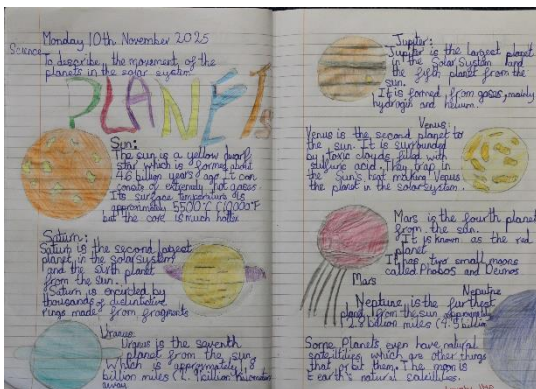 Monday 10th November 2025
Science
To describe the movement of the
planets in the solar system
PLANETS
Sun:
The sun is a yellow dwarf
star which is formed about
4.6 billion years ago. It
consists of extremely hot gases.
Its surface temperature is
approximately 5500°C (10000°F
but the core is much hotter
Saturn:
Saturn is the second largest
planet, in the solar system
and the sixth planet
from the sun.
Saturn is encircled by
thousands of distinctive
rings made from fragments
Uranus
Uranus is the seventh
planet from the sun
Which is approximately
billion miles (
away
Jupiter:
Jupiter is the largest planet
in the Solar System and
the fifth planet from the
sun.
It is formed from gases, mainly
hydrogen and helium.
Venus:
Venus is the second planet to
the sun. It is surrounded
by toxic clouds filled with
sulfuric acid. They trap in
the Sun's heat making Venus
the planet in the solar system.
Mars is the fourth planet
from the sun.
It is known as the red
planet
It has two small moons
called Phobos and Deimos
Mars
Neptune
Neptune is the furthest
planet from the sun approximately
2.8 billion miles (4.5 billion
Some Planets even have natural
satellites which are other things
that orbit them. The moon is
earth's natural satellites.